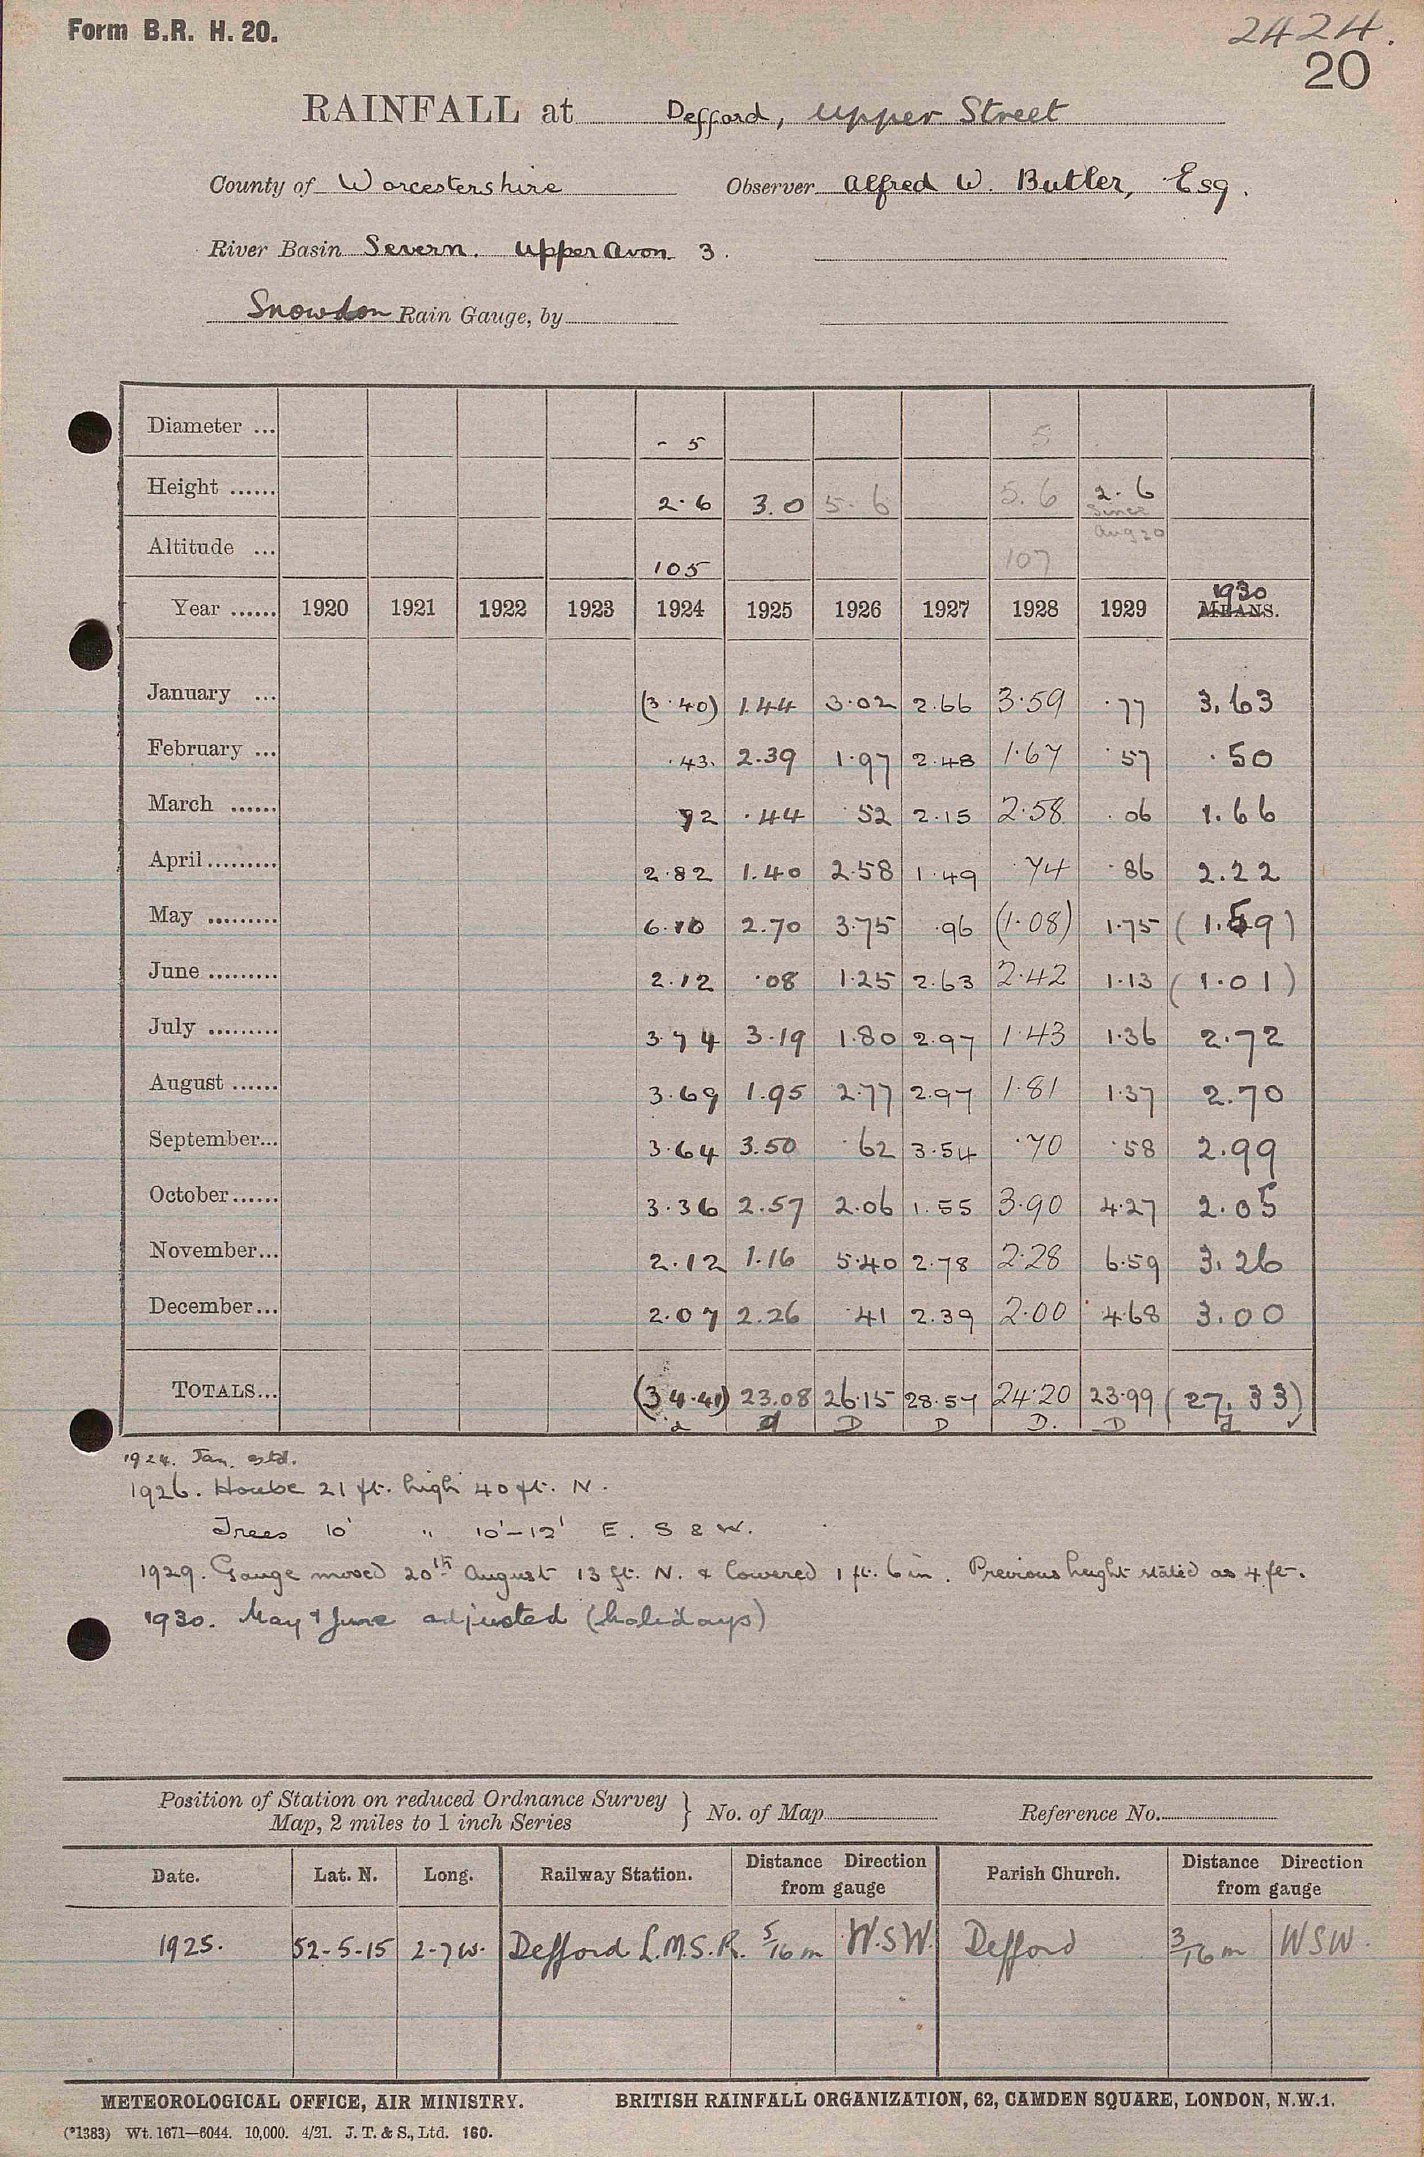 Form B.R. H. 20.
2424.
20
RAINFALL at Defford, Upper Street
County of Worcestershire Observer Alfred W. Butler, Esq.
River Basin Severn. Upper Avon 3.
Snowdon Rain Gauge, by
Diameter ... - 5 5
Height ...... 2.6 3.0 5.6 5.6 2.6 since Aug 20
Altitude ... 105 107
Year ...... 1920 1921 1922 1923 1924 1925 1926 1927 1928 1929 1930 MEANS.
January ... (3.40) 1.44 3.02 2.66 3.59 .77 3.63
February ... .43. 2.39 1.97 2.48 1.67 .57 .50
March ...... 92 .44 52 2.15 2.58 .06 1.66
April ......... 2.82 1.40 2.58 1.49 .74 .86 2.22
May ......... 6.10 2.70 3.75 .96 (1.08) 1.75 (1.59)
June ......... 2.12 .08 1.25 2.63 2.42 1.13 (1.01)
July ......... 3.74 3.19 1.80 2.97 1.43 1.36 2.72
August ...... 3.69 1.95 2.77 2.97 1.81 1.37 2.70
September... 3.64 3.50 .62 3.54 .70 .58 2.99
October...... 3.36 2.57 2.06 1.55 3.90 4.27 2.05
November... 2.12 1.16 5.40 2.78 2.28 6.59 3.26
December... 2.07 2.26 .41 2.39 2.00 4.68 3.00
TOTALS... (34.41) 23.08 26.15 28.57 24.20 23.99 (27.33)
d d D D D. D d ✓
1924. Jan. estd.
1926. House 21 ft. high 40 ft. N.
Trees 10' " 10'-12' E. S & W.
1929. Gauge moved 20th August 13 ft. N. & lowered 1 ft. 6 in. Previous height stated as 4 ft.
1930. May & June adjusted (holidays)
Position of Station on reduced Ordnance Survey
Map, 2 miles to 1 inch Series } No. of Map Reference No.
Date. Lat. N. Long. Railway Station. Distance Direction from gauge Parish Church. Distance Direction from gauge
1925. 52-5-15 2-7 W. Defford L.M.S.R. 5/16 m W.S.W. Defford 3/16 m WSW.
METEOROLOGICAL OFFICE, AIR MINISTRY. BRITISH RAINFALL ORGANIZATION, 62, CAMDEN SQUARE, LONDON, N.W.1.
(*1383) Wt. 1671—6044. 10,000. 4/21. J. T. & S., Ltd. 160.